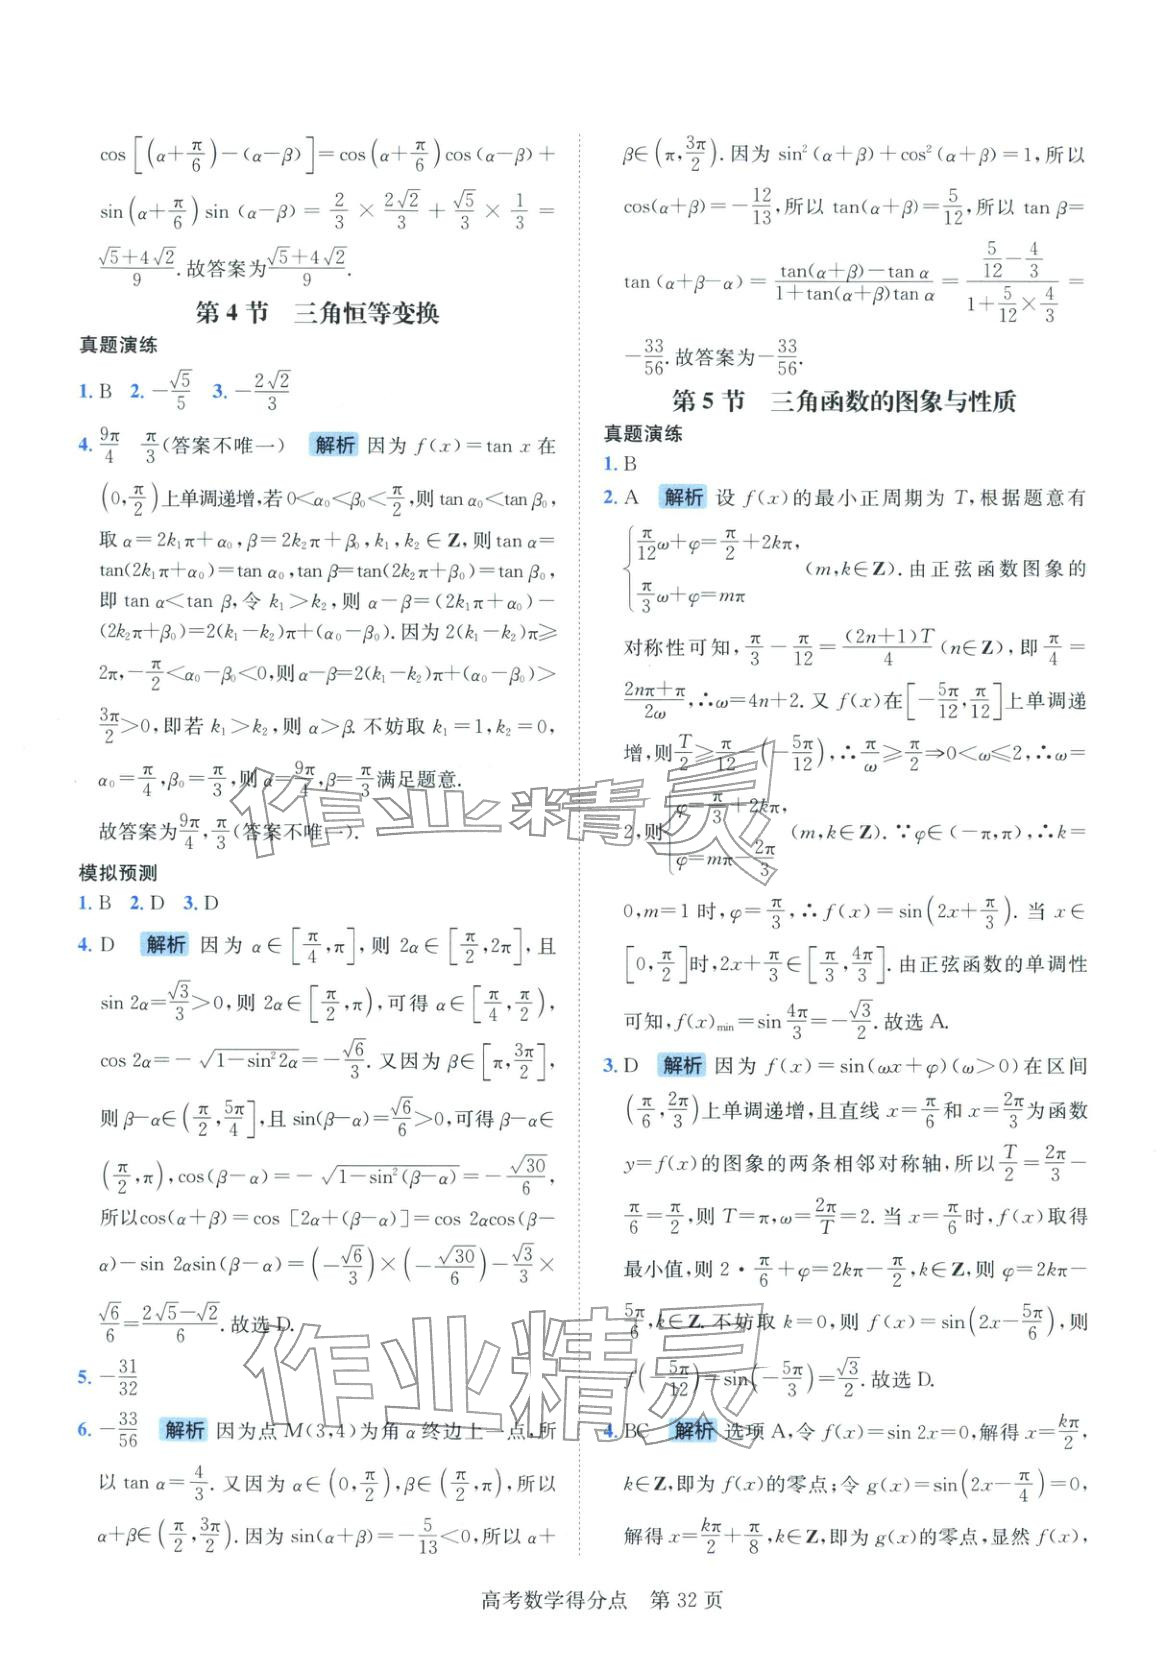 cos[(α+π/6)-(α-β)]=cos(α+π/6)cos(α-β)+
sin(α+π/6)sin (α-β)=2/3×2√2/3+√5/3×1/3=
(√5+4√2)/9.故答案为(√5+4√2)/9.
第 4 节　三角恒等变换
真题演练
1. B　2. -√5/5　3. -2√2/3
4. 9π/4　π/3(答案不唯一)　解析　因为 f(x)=tan x 在
(0,π/2)上单调递增,若 0<α₀<β₀<π/2,则 tan α₀<tan β₀,
取 α=2k₁π+α₀,β=2k₂π+β₀,k₁,k₂∈Z,则 tan α=
tan(2k₁π+α₀)=tan α₀,tan β=tan(2k₂π+β₀)=tan β₀,
即 tan α<tan β,令 k₁>k₂,则 α-β=(2k₁π+α₀)-
(2k₂π+β₀)=2(k₁-k₂)π+(α₀-β₀).因为 2(k₁-k₂)π≥
2π,-π/2<α₀-β₀<0,则 α-β=2(k₁-k₂)π+(α₀-β₀)>
3π/2>0,即若 k₁>k₂,则 α>β.不妨取 k₁=1,k₂=0,
α₀=π/4,β₀=π/3,则α=9π/4,β=π/3满足题意.
故答案为9π/4,π/3(答案不唯一).
模拟预测
1. B　2. D　3. D
4. D　解析　因为 α∈[π/4,π],则 2α∈[π/2,2π],且
sin 2α=√3/3>0,则 2α∈[π/2,π),可得 α∈[π/4,π/2),
cos 2α=-√(1-sin²2α)=-√6/3.又因为 β∈[π,3π/2],
则 β-α∈(π/2,5π/4],且 sin(β-α)=√6/6>0,可得 β-α∈
(π/2,π),cos(β-α)=-√(1-sin²(β-α))=-√30/6,
所以cos(α+β)=cos [2α+(β-α)]=cos 2αcos(β-
α)-sin 2αsin(β-α)=(-√6/3)×(-√30/6)-√3/3×
√6/6=(2√5-√2)/6.故选 D.
5. -31/32
6. -33/56　解析　因为点 M(3,4)为角 α 终边上一点,所
以 tan α=4/3.又因为 α∈(0,π/2),β∈(π/2,π),所以
α+β∈(π/2,3π/2).因为 sin(α+β)=-5/13<0,所以 α+
β∈(π,3π/2).因为 sin²(α+β)+cos²(α+β)=1,所以
cos(α+β)=-12/13,所以 tan(α+β)=5/12,所以 tan β=
tan (α+β-α)=(tan(α+β)-tan α)/(1+tan(α+β)tan α)=(5/12-4/3)/(1+5/12×4/3)=
-33/56.故答案为-33/56.
第 5 节　三角函数的图象与性质
真题演练
1. B
2. A　解析　设 f(x)的最小正周期为 T,根据题意有
{π/12ω+φ=π/2+2kπ,
π/3ω+φ=mπ (m,k∈Z).由正弦函数图象的
对称性可知,π/3-π/12=(2n+1)T/4(n∈Z),即π/4=
(2nπ+π)/2ω,∴ω=4n+2.又 f(x)在[-5π/12,π/12]上单调递
增,则T/2≥π/12-(-5π/12),∴π/ω≥π/2⇒0<ω≤2,∴ω=
2,则{φ=π/3+2kπ,
φ=mπ-2π/3 (m,k∈Z).∵φ∈(-π,π),∴k=
0,m=1 时,φ=π/3,∴f(x)=sin(2x+π/3).当 x∈
[0,π/2]时,2x+π/3∈[π/3,4π/3].由正弦函数的单调性
可知,f(x)min=sin 4π/3=-√3/2.故选 A.
3. D　解析　因为 f(x)=sin(ωx+φ)(ω>0)在区间
(π/6,2π/3)上单调递增,且直线 x=π/6和 x=2π/3为函数
y=f(x)的图象的两条相邻对称轴,所以T/2=2π/3-
π/6=π/2,则 T=π,ω=2π/T=2.当 x=π/6时,f(x)取得
最小值,则 2·π/6+φ=2kπ-π/2,k∈Z,则 φ=2kπ-
5π/6,k∈Z.不妨取 k=0,则 f(x)=sin(2x-5π/6),则
f(-5π/12)=sin(-5π/3)=√3/2.故选 D.
4. BC　解析　选项 A,令 f(x)=sin 2x=0,解得 x=kπ/2,
k∈Z,即为 f(x)的零点;令 g(x)=sin(2x-π/4)=0,
解得 x=kπ/2+π/8,k∈Z,即为 g(x)的零点,显然 f(x),
高考数学得分点　第 32 页
作业精灵
作业精灵